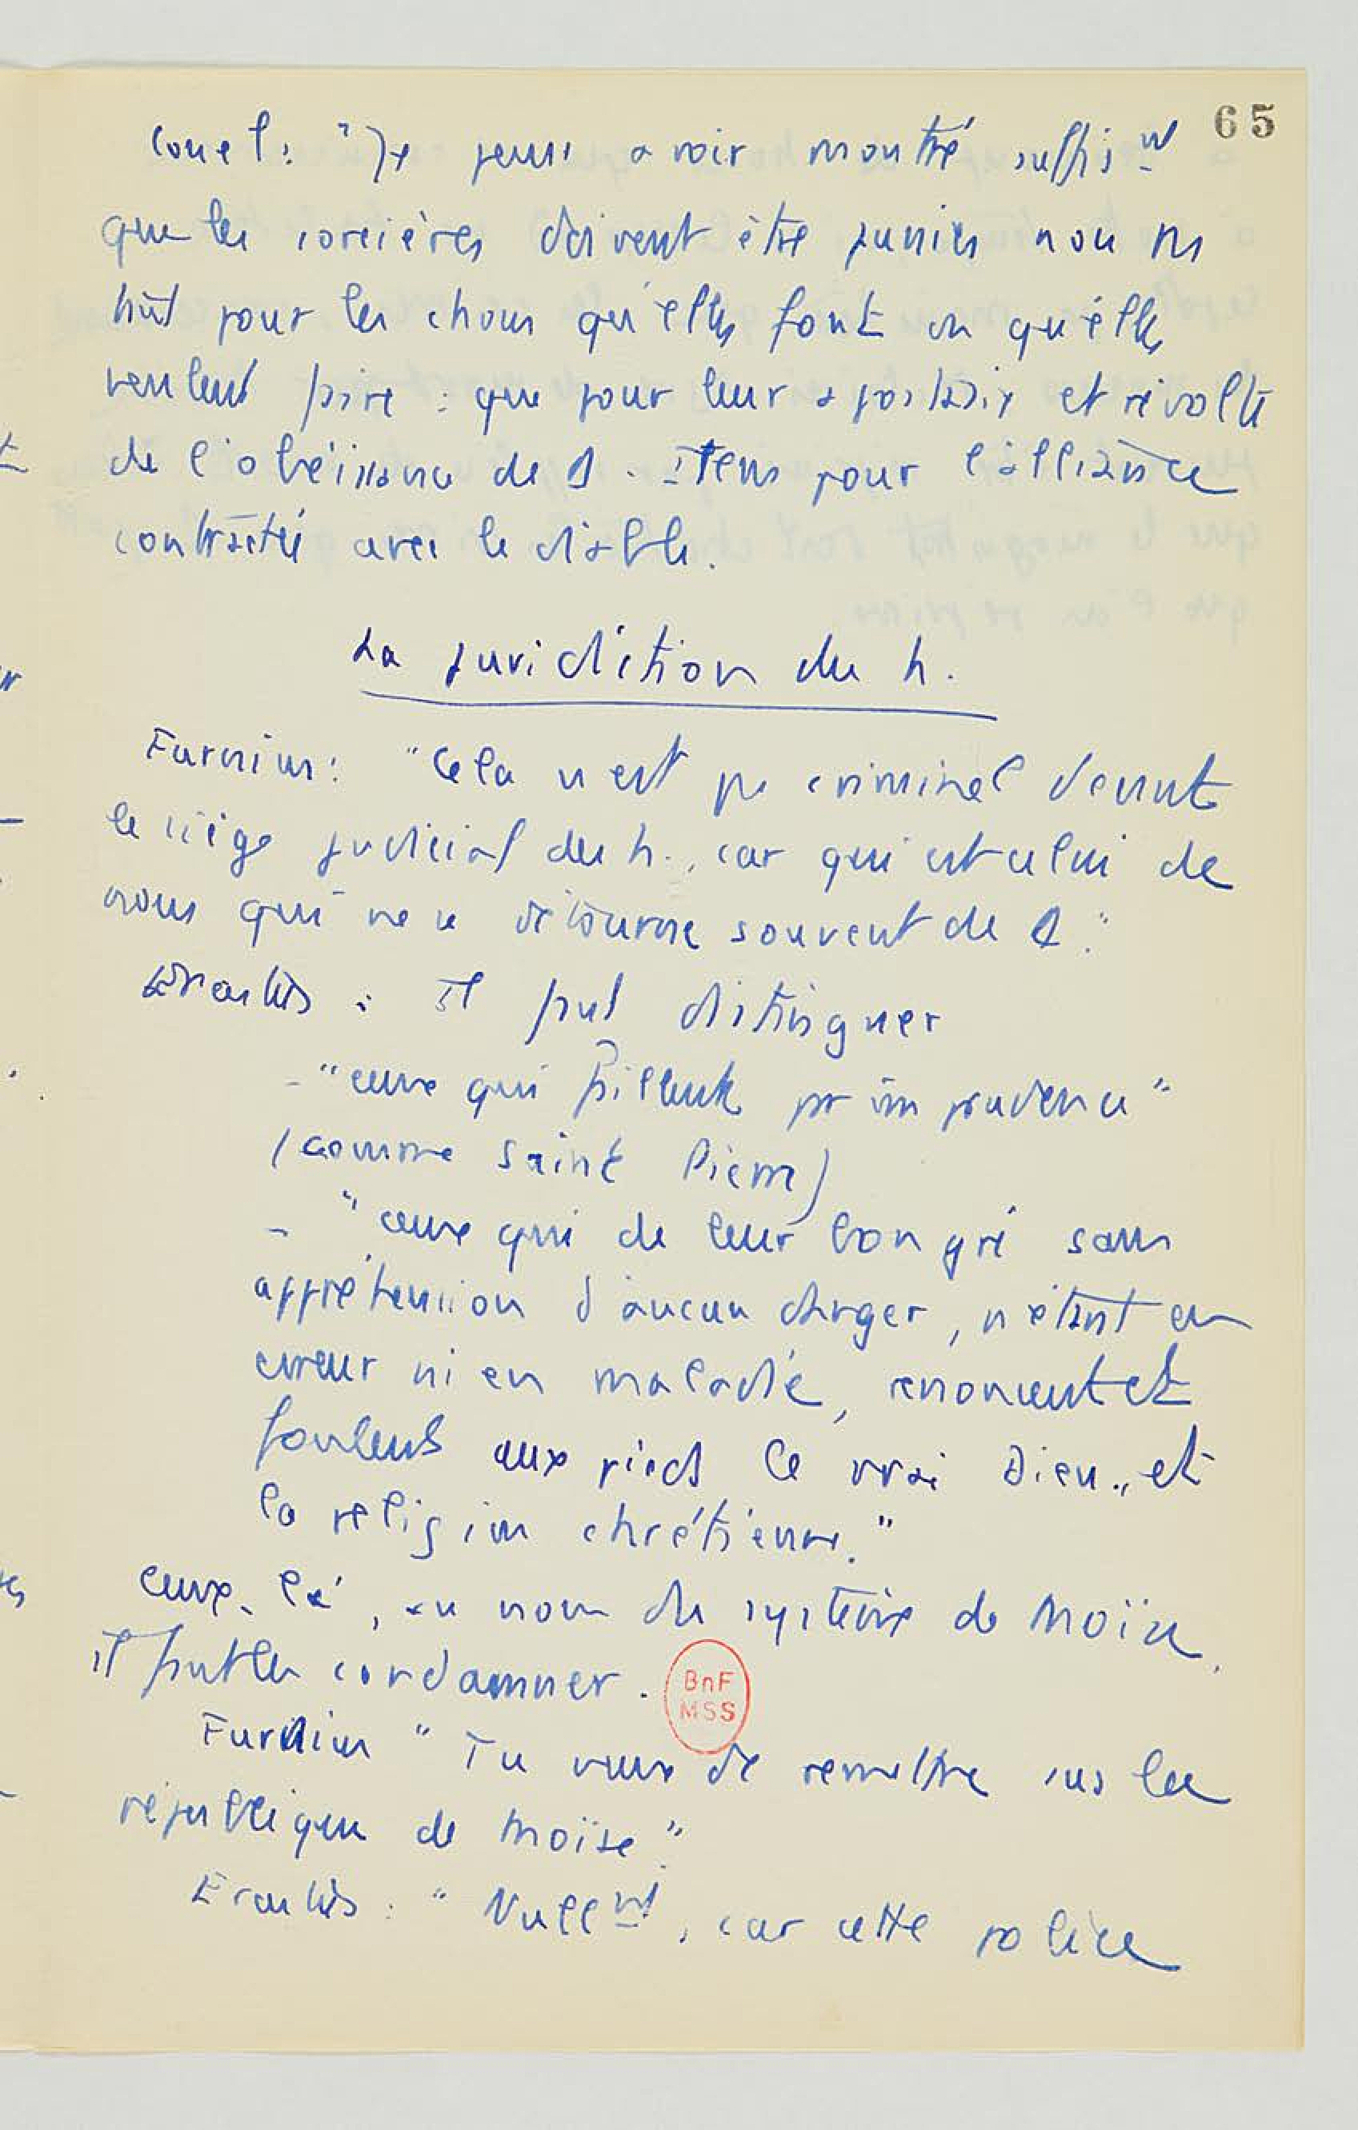 65
Concl: "Je pense avoir montré suffismt
que les sorcières doivent être punies non pas
tant pour les choses qu'elles font ou qu'elles
veulent faire : que pour leur apostasie et révolte
de l'obéissance de D. Item pour l'alliance
contractée avec le diable.
La juridiction du h.
Furnius : "Cela n'est pas criminel devant
le siège judicial des h., car qui est celui de
nous qui ne se détourne souvent de D."
Erastus : il faut distinguer
- "ceux qui faillent par imprudence"
(comme Saint Pierre)
- "ceux qui de leur bon gré sans
appréhension d'aucun danger, n'étant en
erreur ni en maladie, renoncent et
foulent aux pieds le vrai Dieu .. et
la religion chrétienne."
Ceux-là, au nom du système de Moïse,
il faut les condamner.
BnF
MSS
Furnius "Tu veux de remettre sus la
république de Moïse".
Erastus : "Nullmt, car cette police